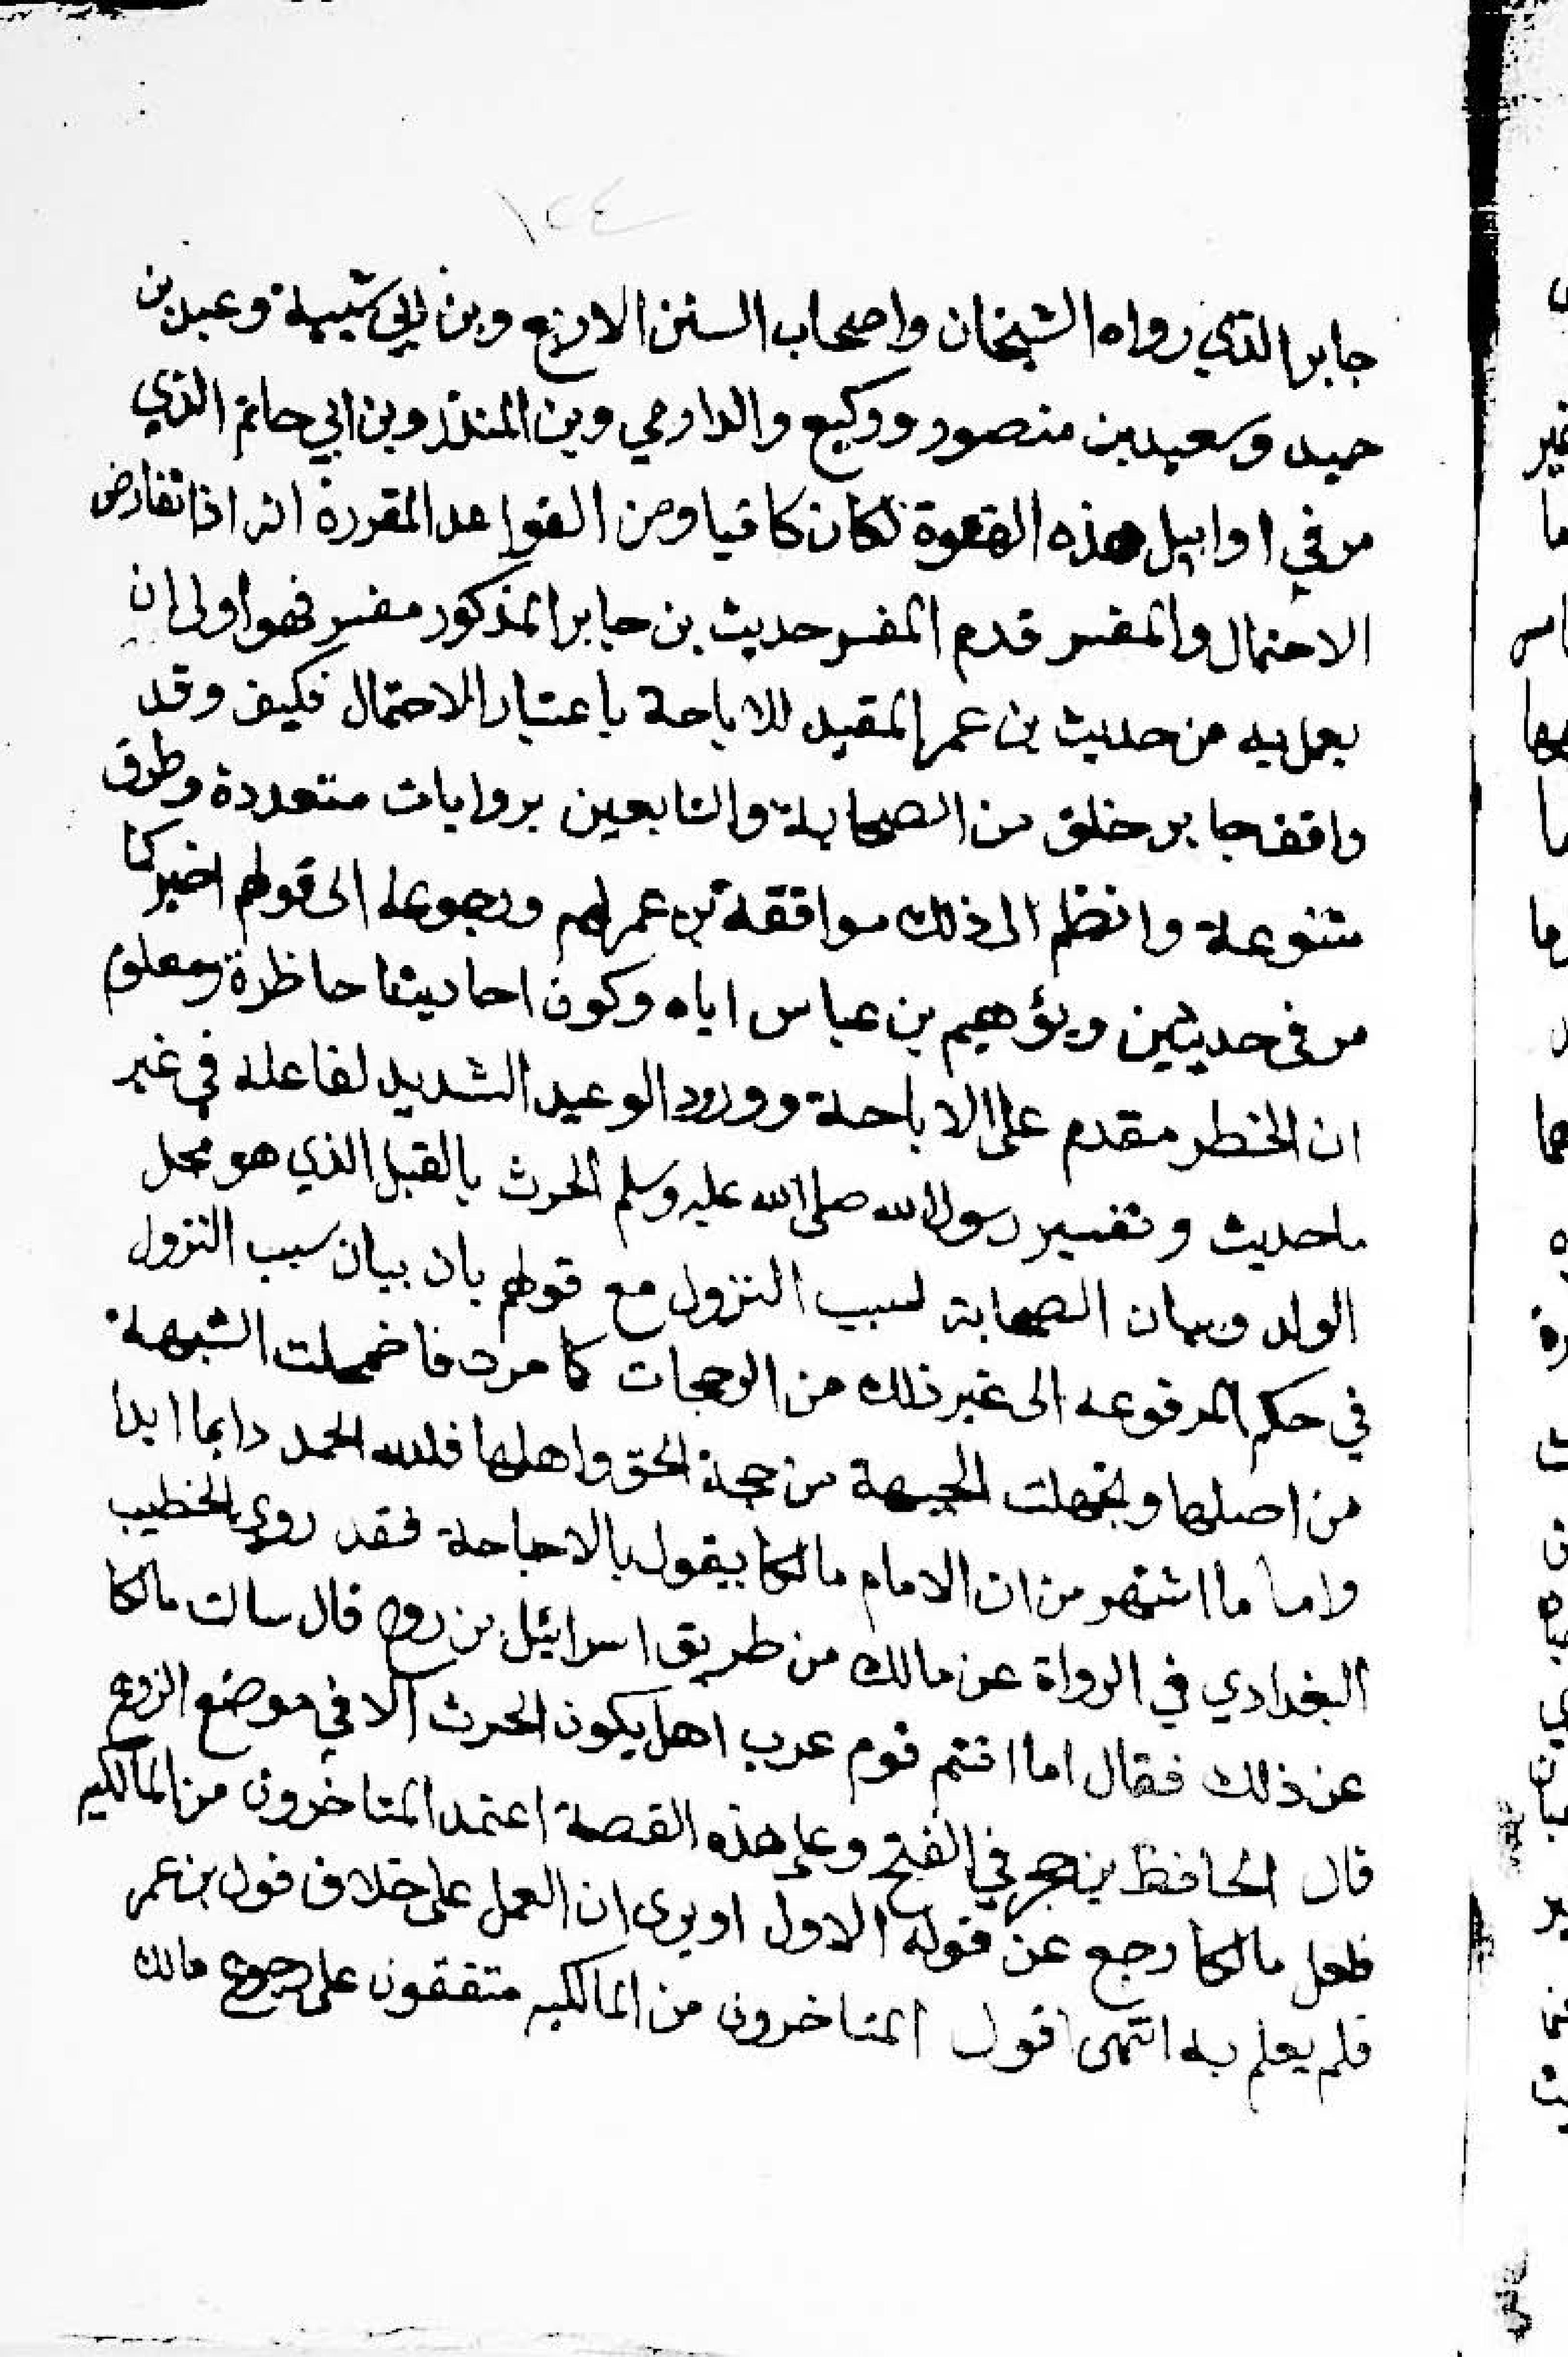 ١٢٤
جابر الذي رواه الشيخان واصحاب السنن الاربع وبن ابي شيبة وعبد بن
حميد وسعيد بن منصور ووكيع والدارمي وبن المنذر وبن ابي حاتم الذي
مر في اوايل هذه القعوة لكان كافيا ومن القواعد المقررة انه اذا تعارض
الاحتمال والمفسر قدم المفسر حديث بن جابر المذكور مفسر فهو اولى ان
يعمل به من حديث بن عمر المقيد للاباحة باعتبار الاحتمال فكيف وقد
وافق جابر خلق من الصحابة والتابعين بروايات متعددة وطرق
متنوعة وانظم الى ذلك موافقة بن عمر لهم ورجوعه الى قولهم اخير كما
مر في حديثين ويؤهيم بن عباس اياه وكون احاديثنا حاظرة ومعلوم
ان الحظر مقدم على الاباحة وورود الوعيد الشديد لفاعله في غير
ما حديث وتفسير رسول الله صلى الله عليه وسلم الحرث بالقبل الذي هو محل
الولد وبيان الصحابة لسبب النزول مع قولهم بان بيان سبب النزول
في حكم المرفوعه الى غير ذلك من الوجهات كما مرت فاضمحلت الشبهة
من اصلها الجبهة من حجة الحق واهلها فلله الحمد دايما ابدا
واما ما اشتهر من ان الامام مالكا يقول بالاباحة فقد روى الخطيب
البغدادي في الرواة عن مالك من طريق اسرائيل بن روح قال سالت مالكا
عن ذلك فقال اما انتم قوم عرب اهل يكون الحرث الا في موضع الزرع
قال الحافظ بن حجر في الفتح وعلى هذه القصة اعتمد المتاخرون من المالكيه
فلعل مالكا رجع عن قوله الاول او يرى ان العمل على خلاف قول بن عمر
فلم يعلم به انتهى اقول المتاخرون من المالكيه متفقون على رجوع مالك